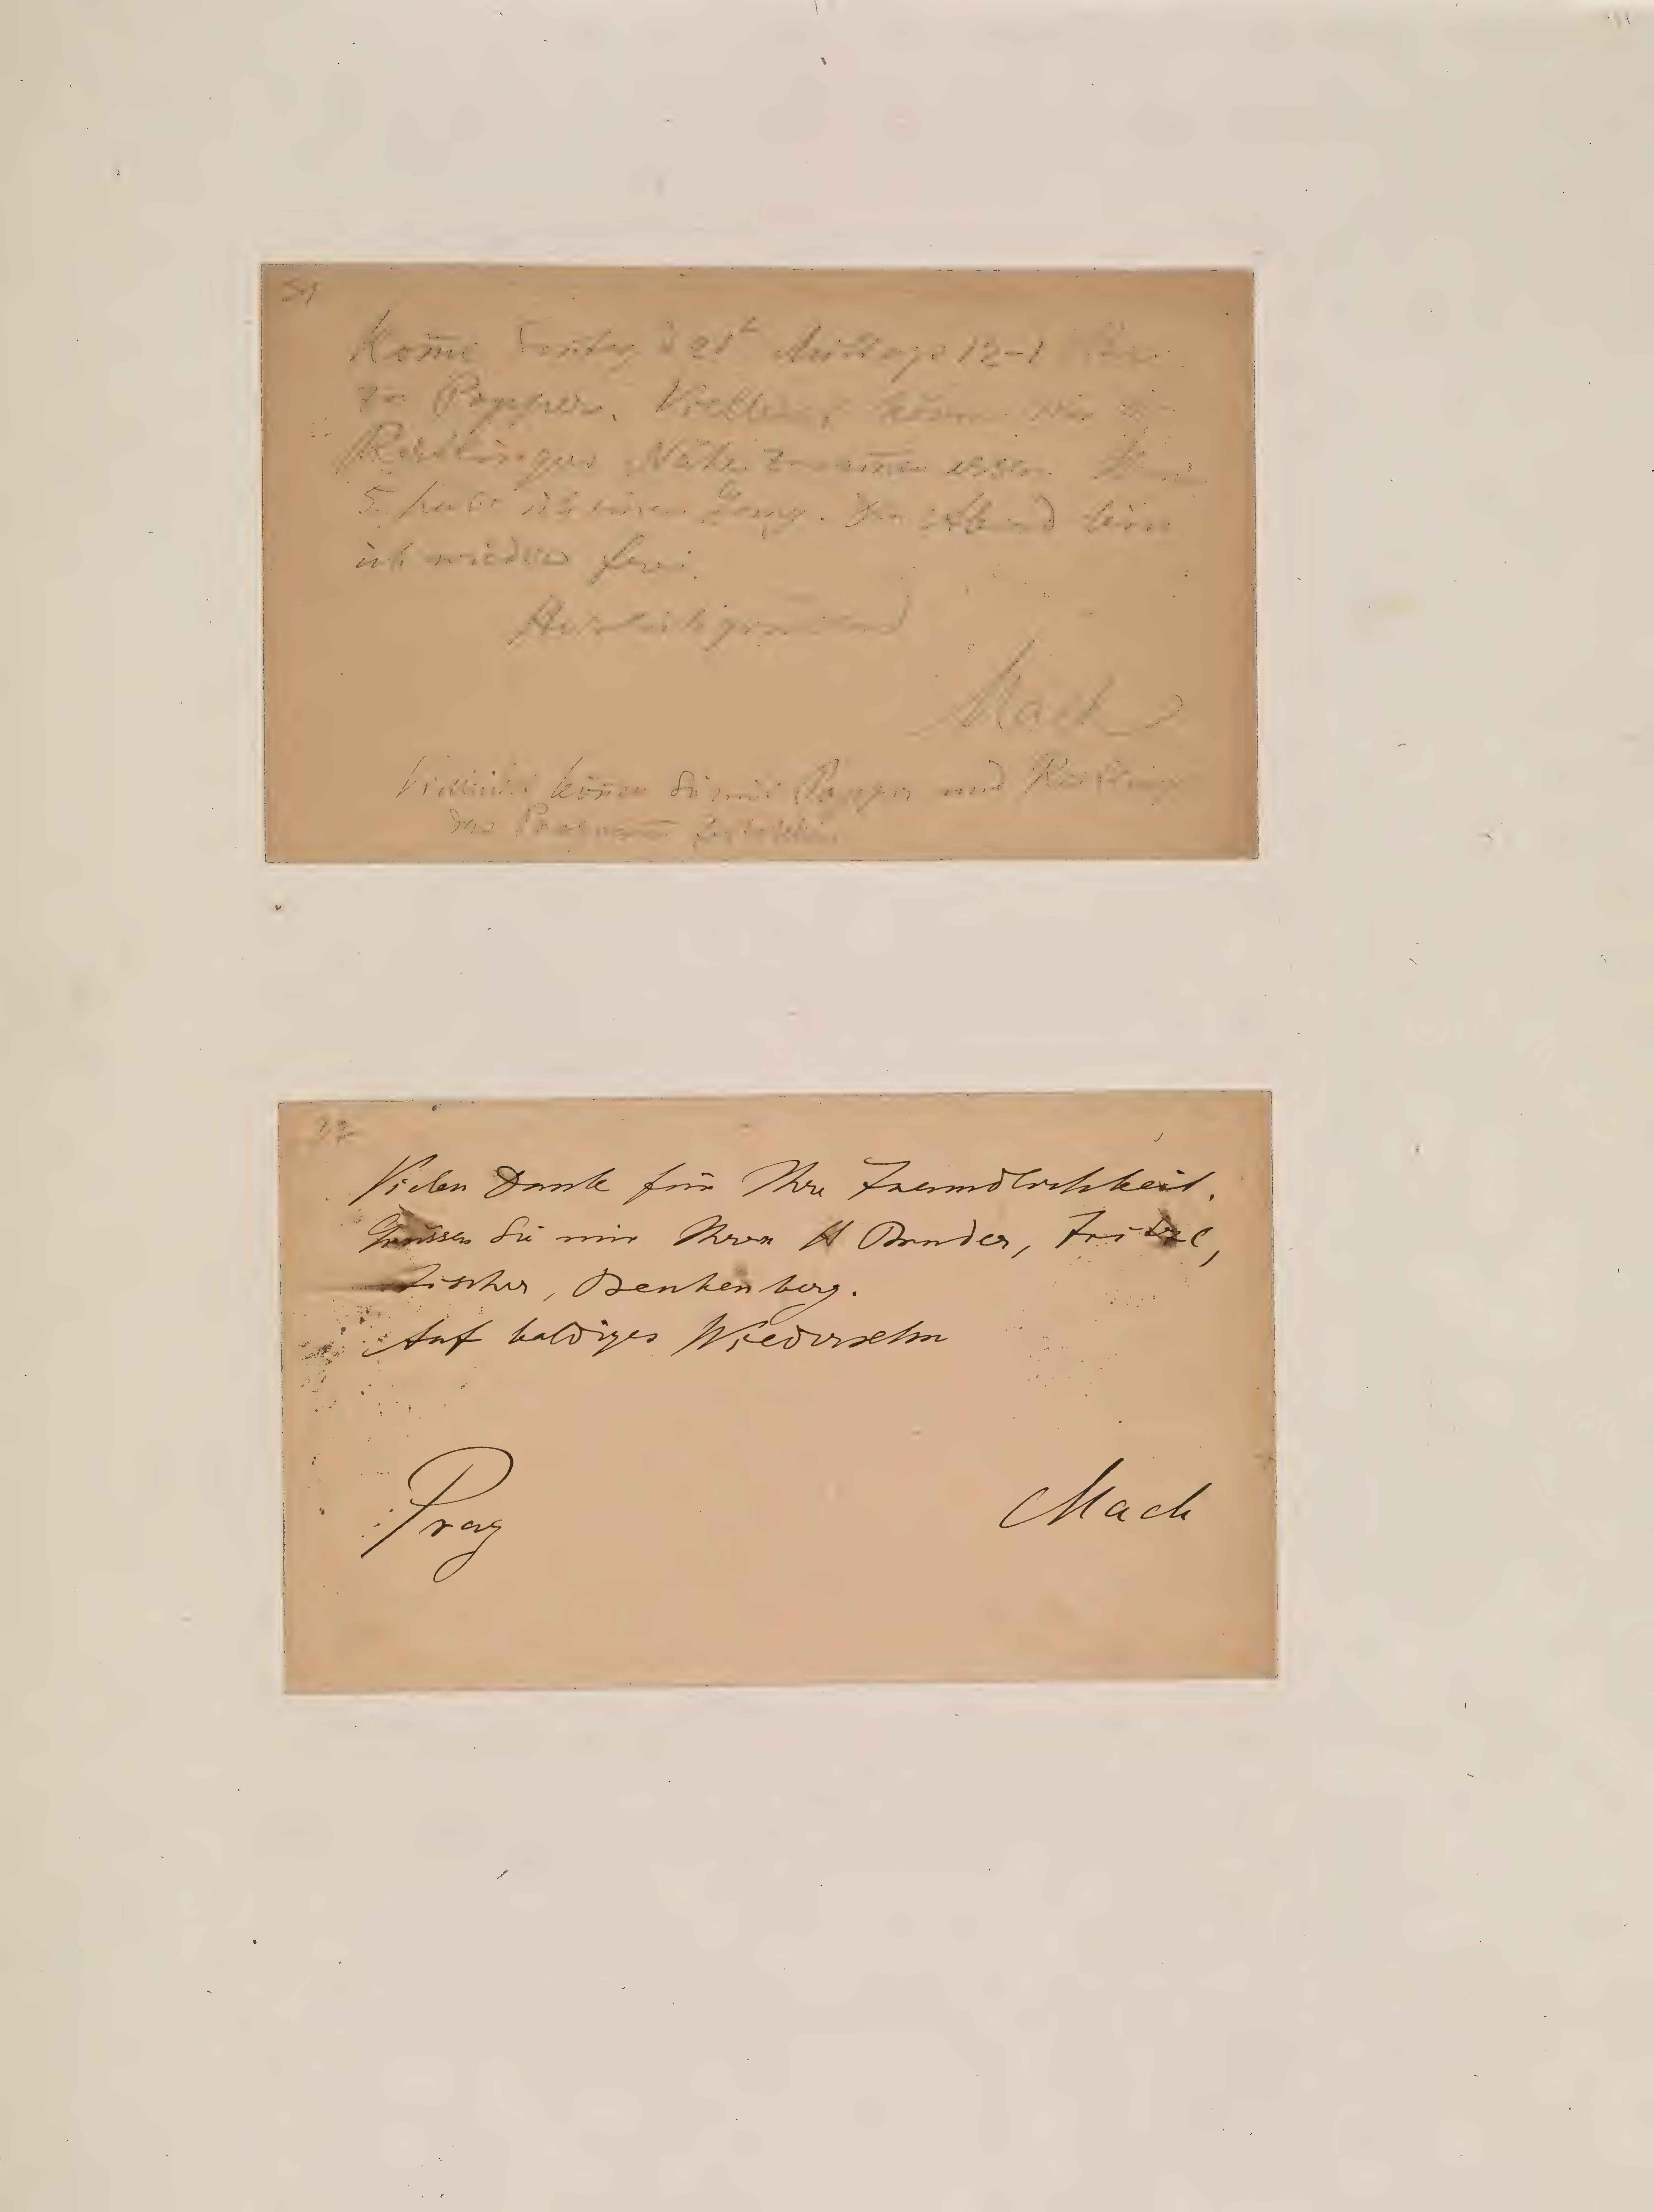 Kome d 21t Mittags 12-1 Uhr
zu Popper. Vielleicht könen wir in
Reitlingers Nähe zusamen essen. Um
5 habe ich einen Gang. Am Abend bin
ich wieder frei.
Hochachtungsvoll
Mach
Vielleicht könen Sie mit Popper und Reitlinger
das Program feststellen.
32
Vielen Dank für Ihre Freundlichkeit.
Grüssen Sie mir Ihren H Bruder, Fritzl,
Fischer, Benkenberg.
Auf baldiges Wiedersehn
Prag
Mach